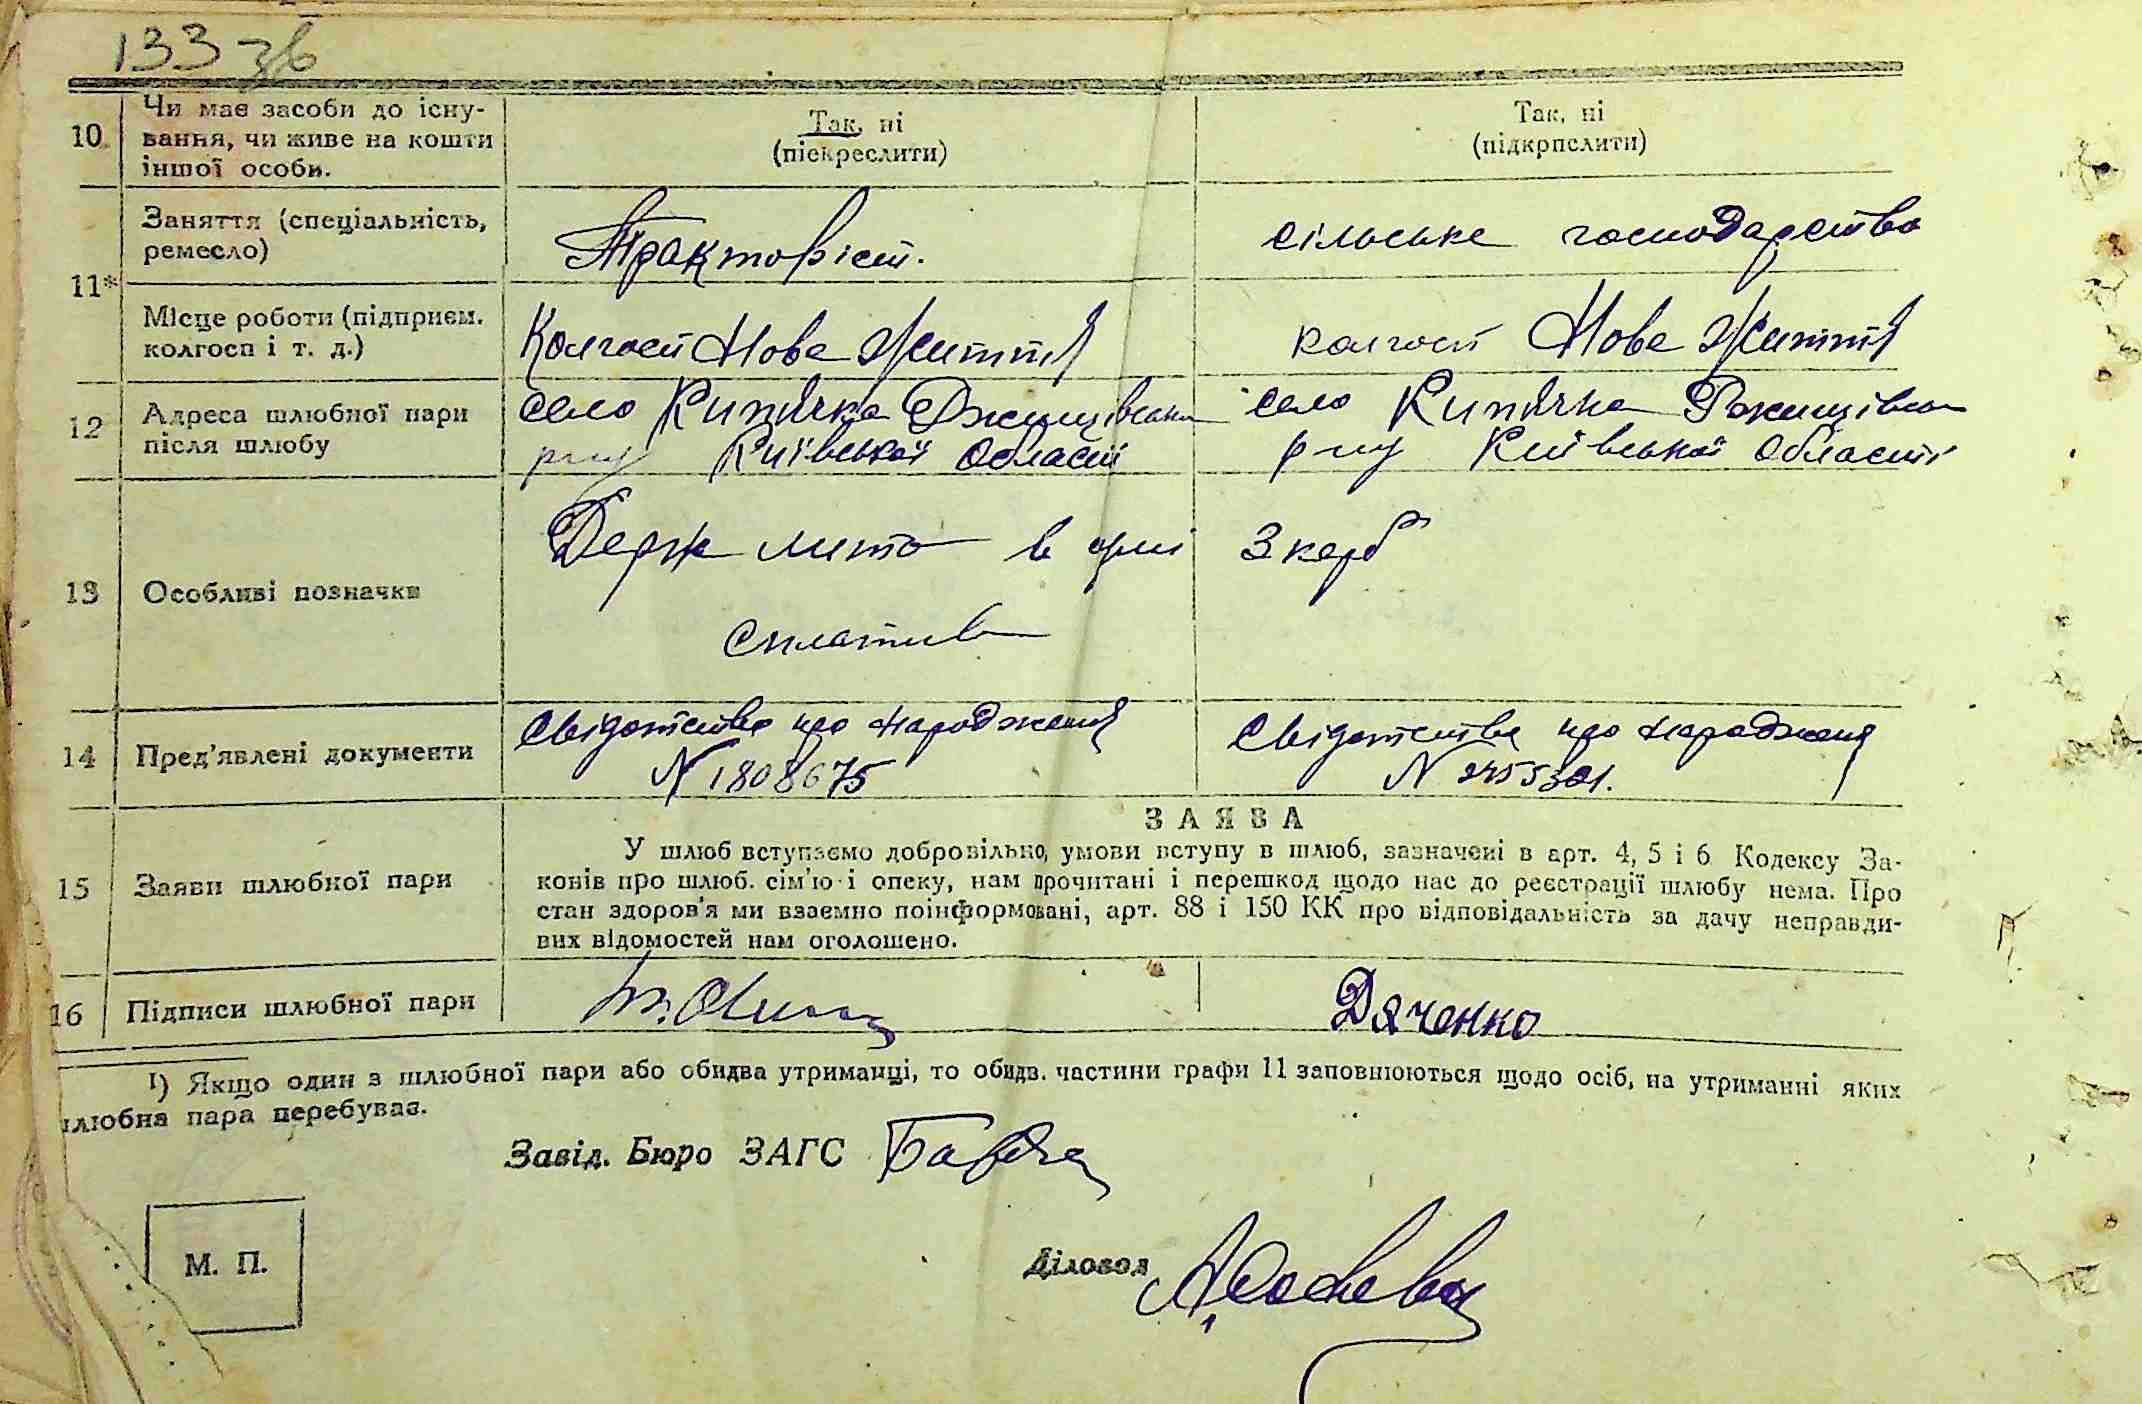 133 зв
10
Чи має засоби до існу-
вання, чи живе на кошти
іншої особи.
Так, ні
(піекреслити)
Так, ні
(підкрпслити)
11*
Заняття (спеціальність,
ремесло)
Тракторіст.
сільське господарство
Місце роботи (підприєм.
колгосп і т. д.)
Колгосп Нове Життя
колгосп Нове Життя
12
Адреса шлюбної пари
після шлюбу
село Кип'ячка
р-ну Київської області
село Кип'ячка
р-ну Київської області
13
Особливі позначки
Держ мито в сумі 3 карб
сплатив
14
Пред'явлені документи
Свідотство про народження
N 1808675
Свідотство про народженя
N 2455301.
15
Заяви шлюбної пари
ЗАЯВА
У шлюб вступаємо добровільно, умови вступу в шлюб, зазначені в арт. 4, 5 і 6 Кодексу За-
конів про шлюб. сім'ю і опеку, нам прочитані і перешкод щодо нас до реєстрації шлюбу нема. Про
стан здоров'я ми взаємно поінформовані, арт. 88 і 150 КК про відповідальність за дачу неправди-
вих відомостей нам оголошено.
16
Підписи шлюбної пари
Дяченко
1) Якщо один з шлюбної пари або обидва утриманці, то обидв. частини графи 11 заповнюються щодо осіб, на утриманні яких
шлюбна пара перебуває.
Завід. Бюро ЗАГС
М. П.
Діловод